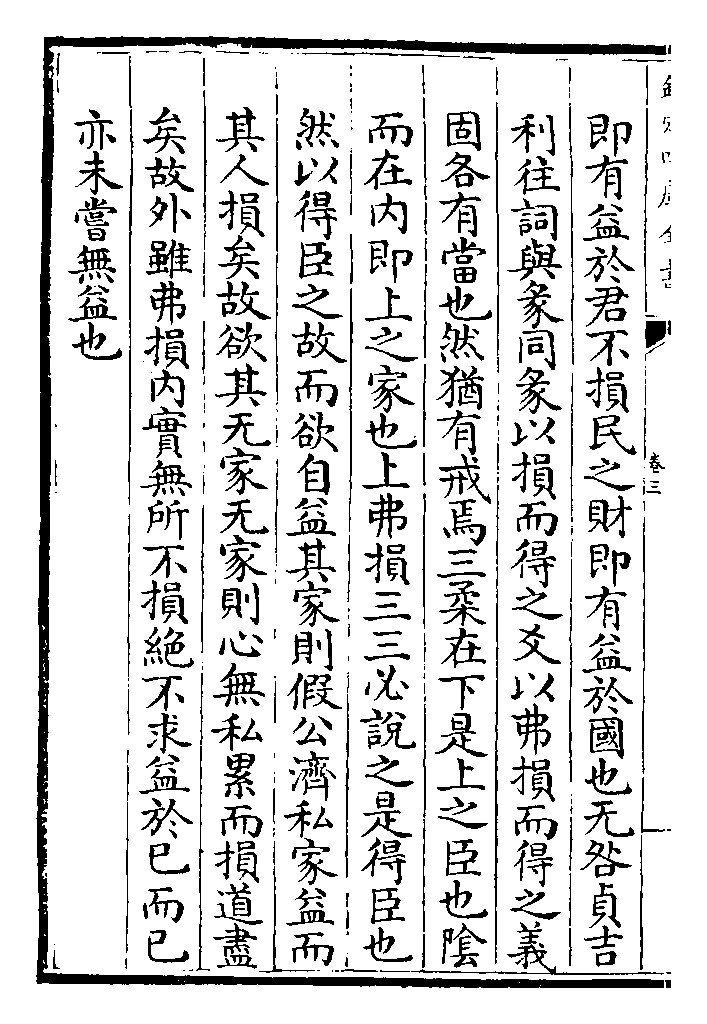 欽定四庫全書
卷三
即有益於君不損民之財即有益於國也无咎貞吉
利往詞與彖同彖以損而得之爻以弗損而得之義
固各有當也然猶有戒焉三柔在下是上之臣也陰
而在内即上之家也上弗損三三必說之是得臣也
然以得臣之故而欲自益其家則假公濟私家益而
其人損矣故欲其无家无家則心無私累而損道盡
矣故外雖弗損内實無所不損絶不求益於已而已
亦未嘗無益也